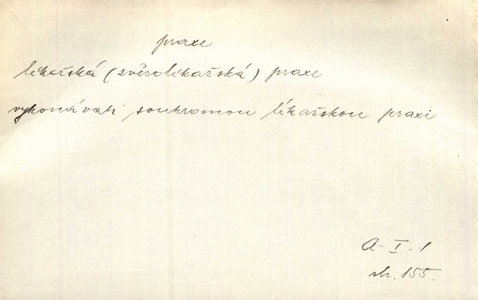 praxe
lékařská (zvěrolékařská) praxe
vykonávati soukromou lékařskou praxi
A-I-1
str. 155.